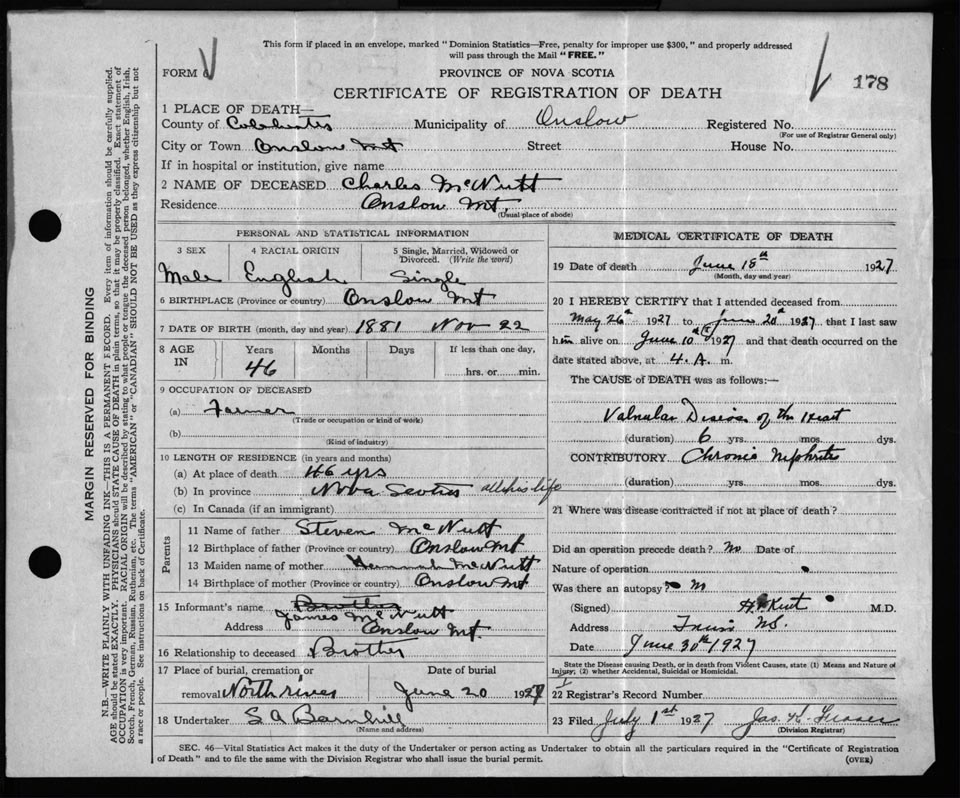 This form if placed in an envelope, marked "Dominion Statistics—Free, penalty for improper use $300," and properly addressed
will pass through the Mail "FREE."
FORM 6
PROVINCE OF NOVA SCOTIA
178
CERTIFICATE OF REGISTRATION OF DEATH
1 PLACE OF DEATH—
County of Colchester Municipality of Onslow Registered No.
(For use of Registrar General only)
City or Town Onslow Mt Street House No.
If in hospital or institution, give name
2 NAME OF DECEASED Charles McNutt
Residence Onslow Mt,
(Usual place of abode)
PERSONAL AND STATISTICAL INFORMATION
3 SEX 4 RACIAL ORIGIN 5 Single, Married, Widowed or
Divorced. (Write the word)
Male English Single
6 BIRTHPLACE (Province or country) Onslow Mt
7 DATE OF BIRTH (month, day and year) 1881 Nov 22
8 AGE IN Years Months Days If less than one day,
46 hrs. or min.
9 OCCUPATION OF DECEASED
(a) Farmer
(Trade or occupation or kind of work)
(b)
(Kind of industry)
10 LENGTH OF RESIDENCE (in years and months)
(a) At place of death 46 yrs
(b) In province Nova Scotia all his life
(c) In Canada (if an immigrant)
Parents
11 Name of father Steven McNutt
12 Birthplace of father (Province or country) Onslow Mt
13 Maiden name of mother Hannah McNutt
14 Birthplace of mother (Province or country) Onslow Mt
15 Informant's name Brother
James McNutt
Address Onslow Mt.
16 Relationship to deceased Brother
17 Place of burial, cremation or Date of burial
removal North river June 20 1927
18 Undertaker S. A. Barnhill
(Name and address)
MEDICAL CERTIFICATE OF DEATH
19 Date of death June 18th 1927
(Month, day and year)
20 I HEREBY CERTIFY that I attended deceased from
May 26th 1927 to June 20th 1927 that I last saw
him alive on June 10th 1927 and that death occurred on the
date stated above, at 4. A. m.
The CAUSE OF DEATH was as follows:—
Valvular Disease of the Heart
(duration) 6 yrs. mos. dys.
CONTRIBUTORY Chronic Nephritis
(duration) yrs. mos. dys.
21 Where was disease contracted if not at place of death?
Did an operation precede death? No Date of
Nature of operation
Was there an autopsy? No
(Signed) H. Kent M.D.
Address Truro NS.
Date June 30th 1927
State the Disease causing Death, or in death from Violent Causes, state (1) Means and Nature of
Injury; (2) whether Accidental, Suicidal or Homicidal.
22 Registrar's Record Number
23 Filed July 1st 1927 Jas. K.
(Division Registrar)
SEC. 46—Vital Statistics Act makes it the duty of the Undertaker or person acting as Undertaker to obtain all the particulars required in the "Certificate of Registration
of Death" and to file the same with the Division Registrar who shall issue the burial permit.
(OVER)
MARGIN RESERVED FOR BINDING
N.B.—WRITE PLAINLY WITH UNFADING INK—THIS IS A PERMANENT RECORD. Every item of information should be carefully supplied.
AGE should be stated EXACTLY. PHYSICIANS should STATE CAUSE OF DEATH in plain terms, so that it may be properly classified. Exact statement of
OCCUPATION is very important. RACIAL ORIGIN will be described by stating to what people or tongue the deceased person belonged, whether English, Irish,
Scotch, French, German, Russian, Ruthenian, etc. The terms "AMERICAN" or "CANADIAN" SHOULD NOT BE USED as they express citizenship but not
a race or people. See instructions on back of Certificate.